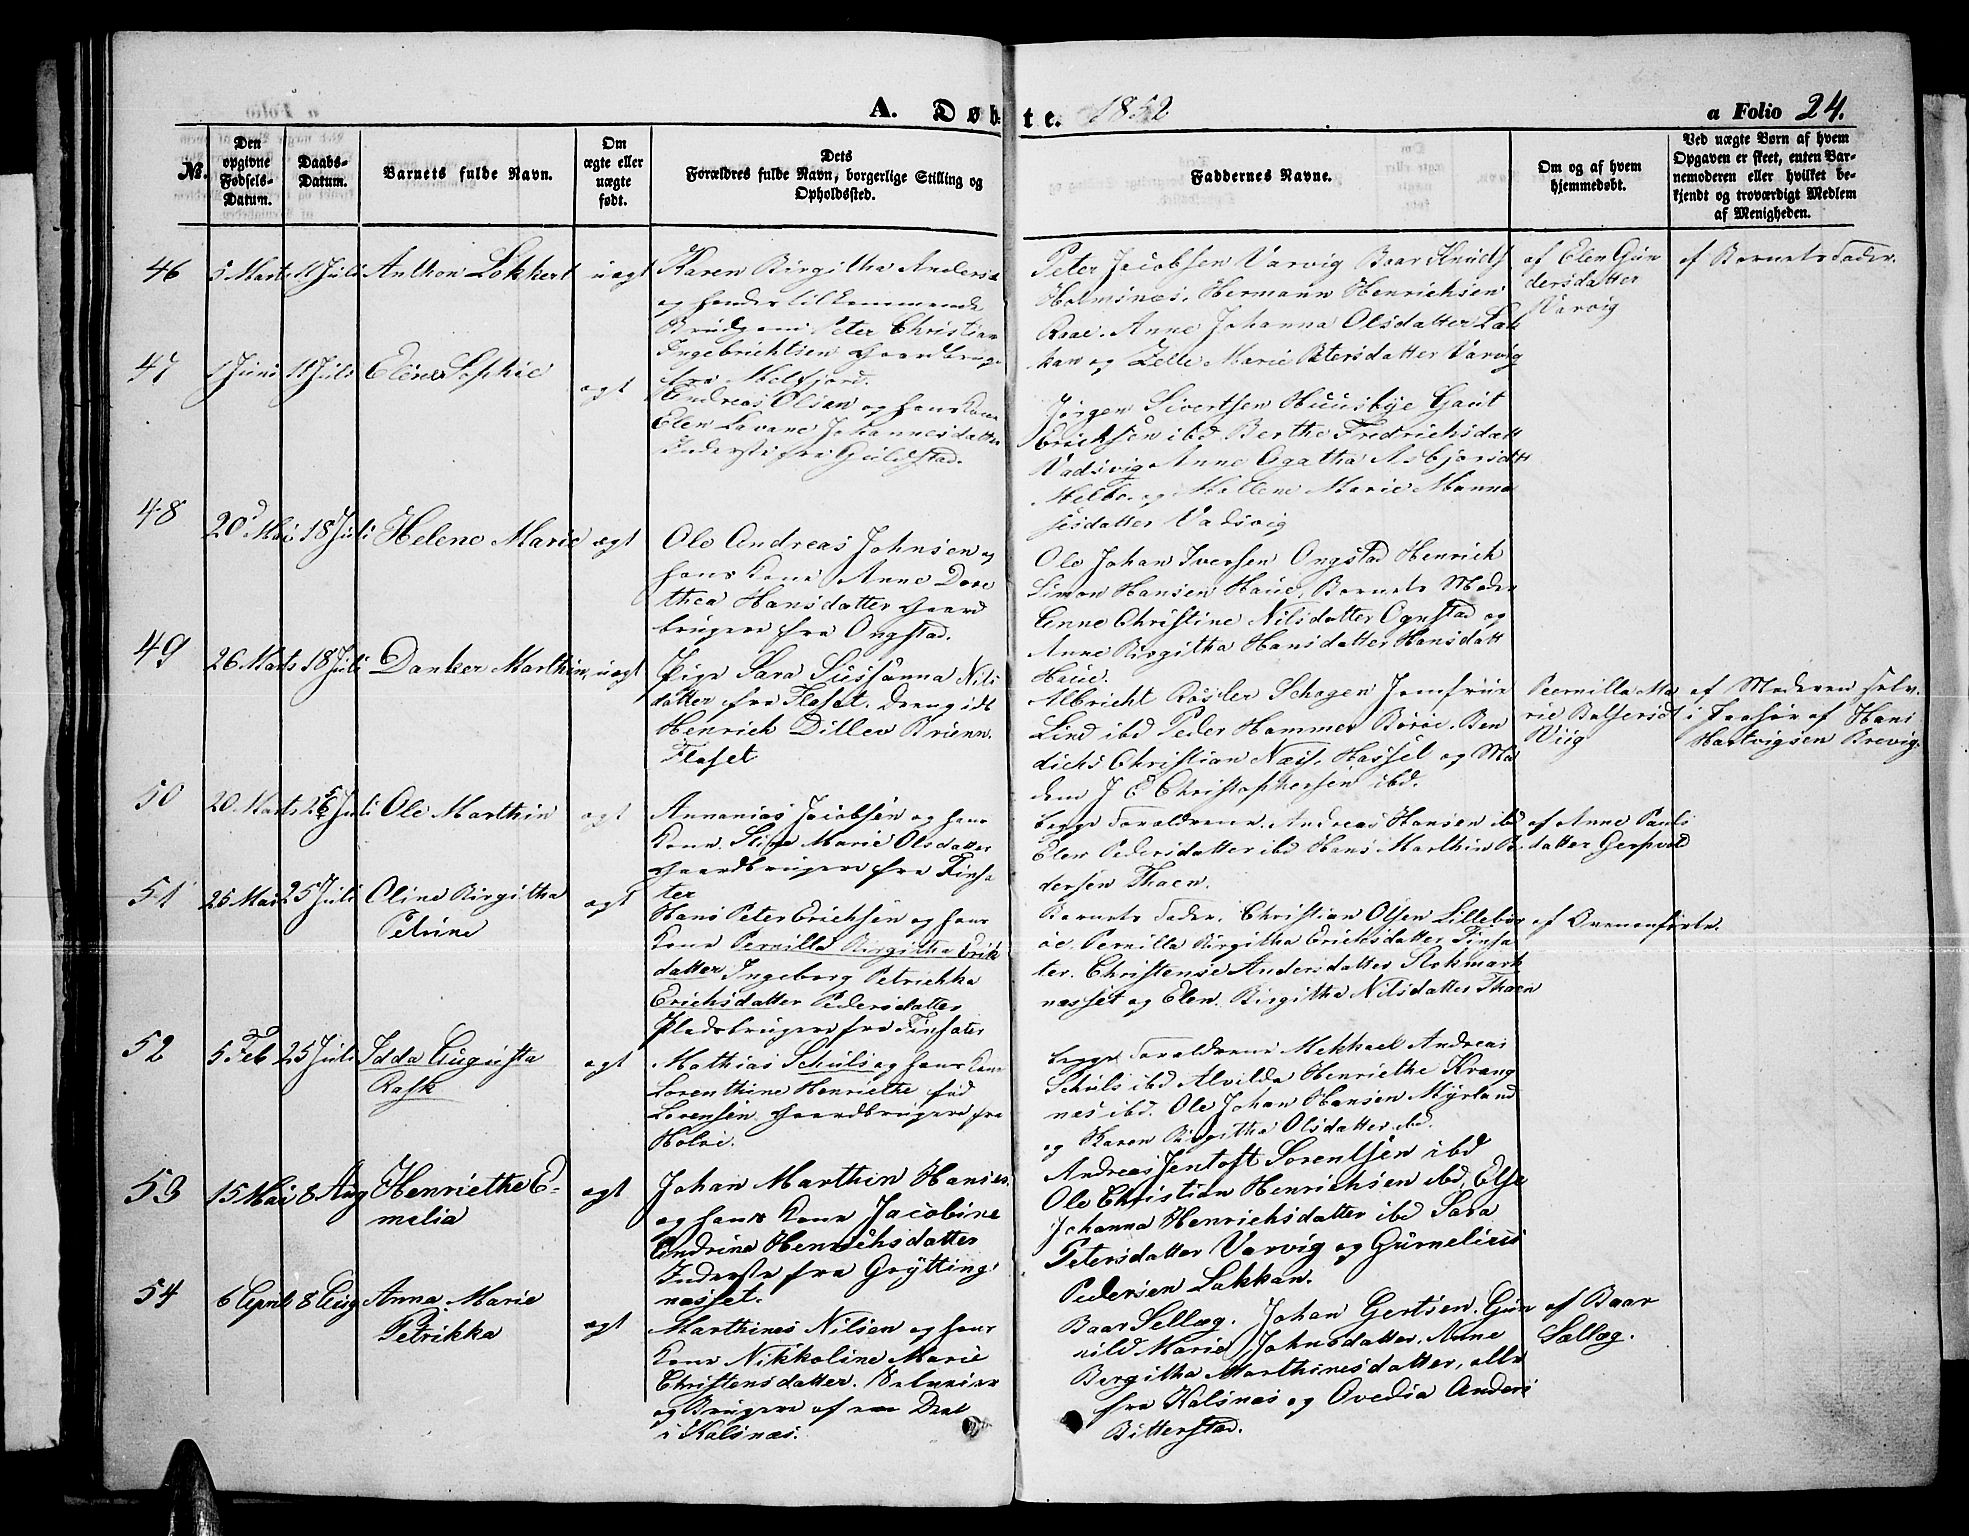 A. Døbte. 1852
a Folio 24.
№.
Den opgivne Fødsels-Datum.
Daabs-Datum.
Barnets fulde Navn.
Om ægte eller uægte født.
Dets Forældres fulde Navn, borgerlige Stilling og Opholdssted.
Faddernes Navne.
Om og af hvem hjemmedøbt.
Ved uægte Børn af hvem Opgaven er skeet, enten Barnemoderen eller hvilket bekjendt og troværdigt Medlem af Menigheden.
46
5 Marts
11 Juli
Anthon Lokkert
uægt
Karen Birgitha Andersd
og hendes tilkommende
Brudgom Peter Christian
Ingebrichtsen Gaardbruger
fra Melfjord.
Peter Jacobsen Varvig Baar Knuds
Holmsnæs, Hermann Henrichsen
Raae. Anne Johanna Olsdatter Lak
kan og Zelle Marie Petersdatter Varvig
af Elen Gün
dersdatter
Varvig
af Barnets Fader.
47
1 Juni
11 Juli
Eline Sophie
ægt
Andreas Olsen og hans Kone
Elen Lavane Johannesdatter
Inderste fra Guldstad.
Jörgen Sivertsen Huusbye Gaut
Erichsen ibd Berthe Fredrichsdatt
Vadsvig Anne Agatha Asbjorsdtt
Melbo og Maltene Marie Manna
sesdatter Vadsvig
48
20d Mai
18 Juli
Helene Marie
ægt
Ole Andreas Johnsen og
hans Kone Anne Doro
thea Hansdatter Gaard
brugere fra Ongstad.
Ole Johan Iversen Ongstad Henrich
Simon Hansen Haue, Barnets Moder
Enne Christine Nilsdatter Ognstad og
Anne Birgitha Hansdatter Hansdatt
Haue.
49
26 Marts
18 Juli
Danker Marthin
uægt
Pige Sara Sussanna Nils
datter fra Flaset. Dreng ibd
Henrich Dillev Brünn.
Flaset
Albricht Rösler Schogen Jomfrue
Lind ibd Peder Hammer Böröe. Ben
dichs Christian Næss, Hassel og Ma
dam J E Christophersen ibd.
Pernilla Ma
rie Balsersdt
Wiig
af Moderen selv.
i Paahør af Hans
Hartvigsen Brevig.
50
20. Marts
25 Juli
Ole Marthin
ægt
Annanias Jacobsen og hans
Kone. Stine Marie Olsdatter
Gaardbrugere fra Finsæ
ter
begge Forældrene. Andreas Hansen ibd
Elen Pedersdatter ibd Hans Marthin Pe
dersen Thaen.
af Anne Pauls
datter
51
25 Mai
25 Juli
Oline Birgitha
Petrine
ægt
Hans Peter Erichsen og hans
Kone Pernilla Birgitha Erik
datter Ingeborg Petrikka
Erichsdatter Pedersdatter
Pladsbrugere fra Finsæter
Barnets Fader, Christian Olsen Lillebor
öe. Pernilla Birgitha Erichsdatter Finsæ
ter. Christense Andersdatter Stokmark
næsset og Elen Birgitha Nilsdatter Thaen
af Ovenanførte.
52
5 Feb
25 Juli
Idda Augusta
Rask
ægt
Mathias Schüls og hans Kone
Lorenthine Henriethe fød
Lorensen Gaardbrugere fra
Holvi.
begge Forældrene Mekkael Andreas
Schüls ibd Alvilda Henriethe Krang
nes ibd. Ole Johan Hansen Myrland
og Karen Birgitha Olsdatter ibd.
53
15 Mai
8 Aug
Henriethe E-
melia
ægt
Johan Marthin Hanses.
og hans Kone Jacobine
Andrine Henrichsdatter
Inderste fra Grytting
næsset.
Andreas Jentoft Sorentsen ibd
Ole Christian Henrichsen ibd, Else
Johanna Henrichsdatter ibd Sara
Petersdatter Varvig og Gurnelius
Pedersen Lakkan.
54
6 April
8 Aug
Anna Marie
Petrikka
ægt
Marthines Nilsen og hans
Kone Nikkoline Marie
Christensdatter. Selveier
og Brugere af en Deel
i Kalsnæs.
Baar Sellæg. Johan Gertsen. Gün
nild Marie Johnsdatter, Anne
Bergitha Marthinesdatter, alle
fra Kalsnæs og Ovedia Anders
Bitterstad.
af Baar
Sællæg.